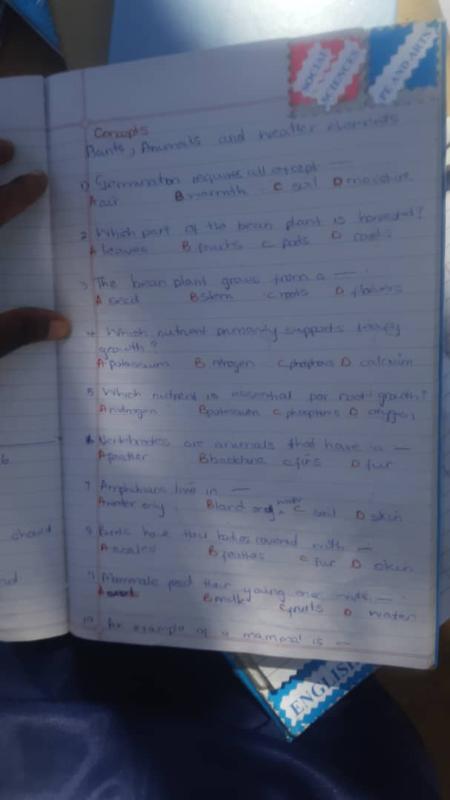 SOCIAL SCIENCES
PE AND ARTS
Concepts
Plants, Animals and weather elements
1) Germination requires all except —
A air B warmth C soil D moisture
2 Which part of the bean plant is harvested?
A leaves B fruits C pods D roots
3 The bean plant grows from a —
A seed B stem C roots D flowers
4 Which nutrient primarily supports
growth?
A potassium B nitrogen C phosphorus D calcium
5 Which nutrient is essential for root growth?
A nitrogen B potassium C phosphorus D oxygen
6 Vertebrates are animals that have a —
A feather B backbone C fins D fur
7 Amphibians live in —
A water only B land and water C soil D skin
8 Birds have their bodies covered with —
A scales B feathers C fur D skin
9 Mammals feed their young ones with —
B milk C fruits D water
10 An example of a mammal is —
should
ENGLISH